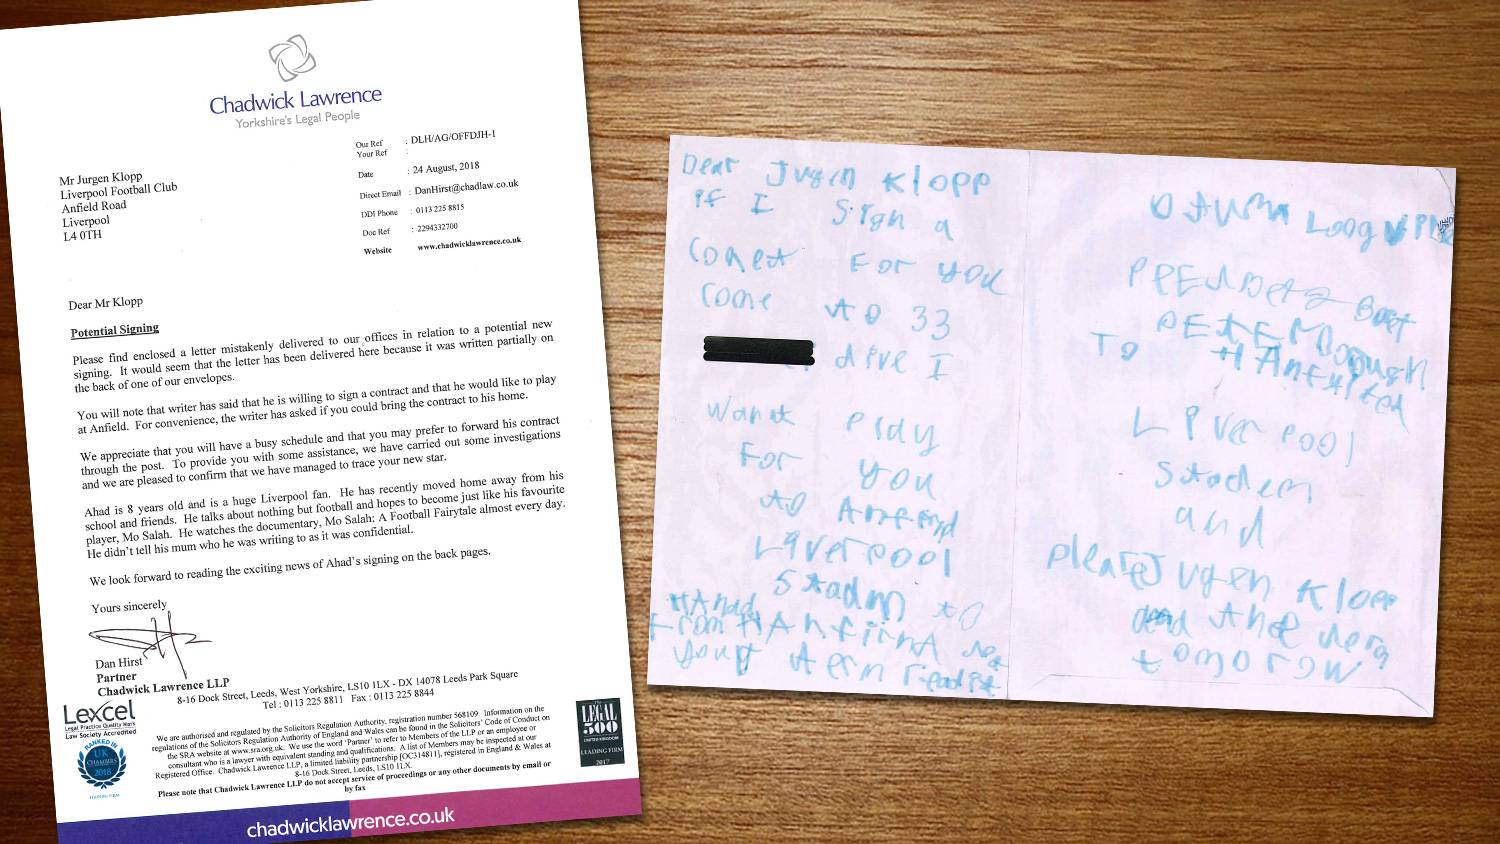 Chadwick Lawrence
Yorkshire's Legal People
Our Ref : DLH/AG/OFFDJH-1
Your Ref :
Date : 24 August, 2018
Direct Email : DanHirst@chadlaw.co.uk
DDI Phone : 0113 225 8815
Doc Ref : 2294332700
Website www.chadwicklawrence.co.uk
Mr Jurgen Klopp
Liverpool Football Club
Anfield Road
Liverpool
L4 0TH
Dear Mr Klopp
Potential Signing
Please find enclosed a letter mistakenly delivered to our offices in relation to a potential new
signing. It would seem that the letter has been delivered here because it was written partially on
the back of one of our envelopes.
You will note that writer has said that he is willing to sign a contract and that he would like to play
at Anfield. For convenience, the writer has asked if you could bring the contract to his home.
We appreciate that you will have a busy schedule and that you may prefer to forward his contract
through the post. To provide you with some assistance, we have carried out some investigations
and we are pleased to confirm that we have managed to trace your new star.
Ahad is 8 years old and is a huge Liverpool fan. He has recently moved home away from his
school and friends. He talks about nothing but football and hopes to become just like his favourite
player, Mo Salah. He watches the documentary, Mo Salah: A Football Fairytale almost every day.
He didn't tell his mum who he was writing to as it was confidential.
We look forward to reading the exciting news of Ahad's signing on the back pages.
Yours sincerely
Dan Hirst
Partner
Chadwick Lawrence LLP
8-16 Dock Street, Leeds, West Yorkshire, LS10 1LX - DX 14078 Leeds Park Square
Tel : 0113 225 8811 Fax : 0113 225 8844
Lexcel
Legal Practice Quality Mark
Law Society Accredited
RANKED IN
UK
CHAMBERS
2018
LEADING FIRM
We are authorised and regulated by the Solicitors Regulation Authority, registration number 568109. Information on the
regulations of the Solicitors Regulation Authority of England and Wales can be found in the Solicitors' Code of Conduct on
the SRA website at www.sra.org.uk. We use the word 'Partner' to refer to Members of the LLP or an employee or
consultant who is a lawyer with equivalent standing and qualifications. A list of Members may be inspected at our
Registered Office. Chadwick Lawrence LLP, a limited liability partnership [OC314811], registered in England & Wales at
8-16 Dock Street, Leeds, LS10 1LX.
Please note that Chadwick Lawrence LLP do not accept service of proceedings or any other documents by email or
by fax
THE
LEGAL
500
UNITED KINGDOM
LEADING FIRM
2017
chadwicklawrence.co.uk
Dear Jugen Klopp
if I sign a
conet for you
come to 33
drive I
want play
for you
to Anfend
Liverpool
Stadm to
HAhad
from
your
Loog
But
To
Liverpool
Stadem
and
please Jugen Klopp
tomorow